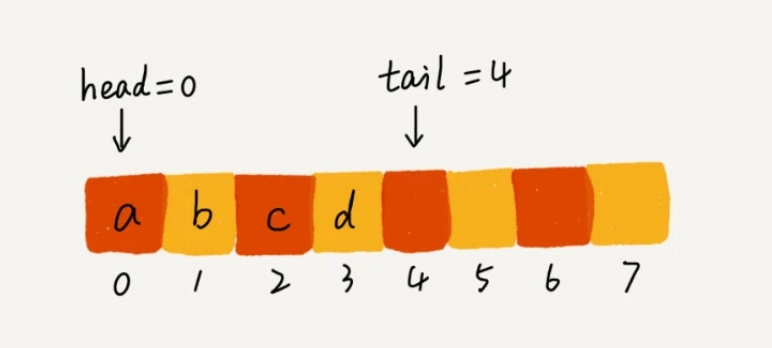 head=0 tail =4
a b c d
0 1 2 3 4 5 6 7